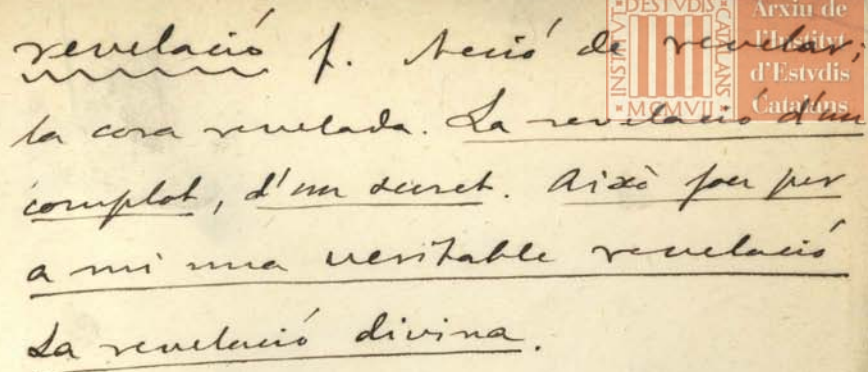 revelació f. Acció de revelar;
la cosa revelada. La revelació d'un
complot, d'un secret. Això fou per
a mi una veritable revelació
La revelació divina.
INSTITVT D'ESTVDIS CATALANS
MCMVII
Arxiu de
l'Institvt
d'Estvdis
Catalans